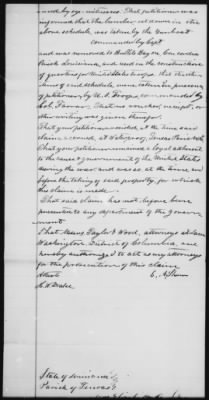 nessed by eye-witnesses. That petitioner was
informed that the lumber set down in the
above schedule, was taken by the Gunboat
commanded by Capt
and was removed to
Parish, Louisiana, and used in the construction
of quarters for United States troops. That the other
items of said schedule, were taken in presence
of petitioner, by U.S. troops, commanded by
Col. That no voucher, receipt, or
other writing was given therefor.
That your petitioner resided, at the time said
claim accrued, at Waterproof, Tensas Parish, La.
That your petitioner remained a loyal adherent
to the cause & government of the United States
during the war, and was so at the time, and
before the taking of said property, for which
this claim is made.
That said claim has not before been
presented to any department of the govern-
ment.
That Messrs Taylor & Wood, attorneys at Law
Washington, District of Columbia, are
hereby authorized to act as my attorneys
for the prosecution of this claim
Attest
State of Louisiana
Parish of Tensas